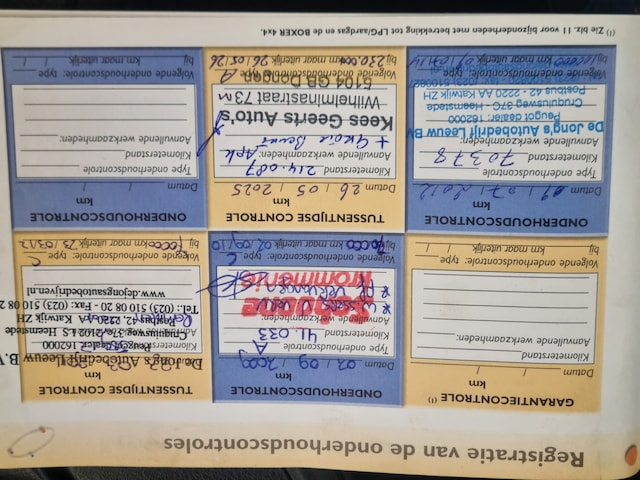 Registratie van de onderhoudscontroles
GARANTIECONTROLE (1)
km
Datum / /
Kilometerstand
Aanvullende werkzaamheden:
Volgende onderhoudscontrole: type
bij km maar uiterlijk / /
ONDERHOUDSCONTROLE
km
Datum 02 / 09 / 2009
Type onderhoudscontrole A
Kilometerstand 41.033
Aanvullende werkzaamheden:
Volgende onderhoudscontrole: type C
bij 70000 km maar uiterlijk 02/09/10
TUSSENTIJDSE CONTROLE
km
De Jong Autobedrijf Leeuw B.V.
Peugeot dealer 162000
Cruquiusweg 37c 2102 LS Heemstede
Postbus 42, 2220 AA Katwijk ZH
Tel.: (023) 510 08 20 - Fax: (023) 510 08 2
www.dejongautobedrijven.nl
Volgende onderhoudscontrole: type C
bij 70000 km maar uiterlijk 23/03/12
ONDERHOUDSCONTROLE
km
Datum 02 / 07 / 2012
Type onderhoudscontrole
Kilometerstand 70378
Aanvullende werkzaamheden:
De Jong Autobedrijf Leeuw BV
Peugot dealer: 162000
Cruquiusweg 37C - Heemstede
Postbus 42 - 2220 AA Katwijk ZH
Volgende onderhoudscontrole: type
km maar uiterlijk
TUSSENTIJDSE CONTROLE
km
Datum 26 / 05 / 2025
Kilometerstand 214.087
Aanvullende werkzaamheden: Apk
+ Groie Beurt
Kees Geerts Auto's
Wilhelminastraat 73
5104 GB Dongen
Volgende onderhoudscontrole: type A
bij 230.000 km maar uiterlijk 26/05/26
ONDERHOUDSCONTROLE
km
Datum / /
Type onderhoudscontrole
Kilometerstand
Aanvullende werkzaamheden:
Volgende onderhoudscontrole: type
bij km maar uiterlijk / /
(1) Zie blz. 11 voor bijzonderheden met betrekking tot LPG/aardgas en de BOXER 4x4.